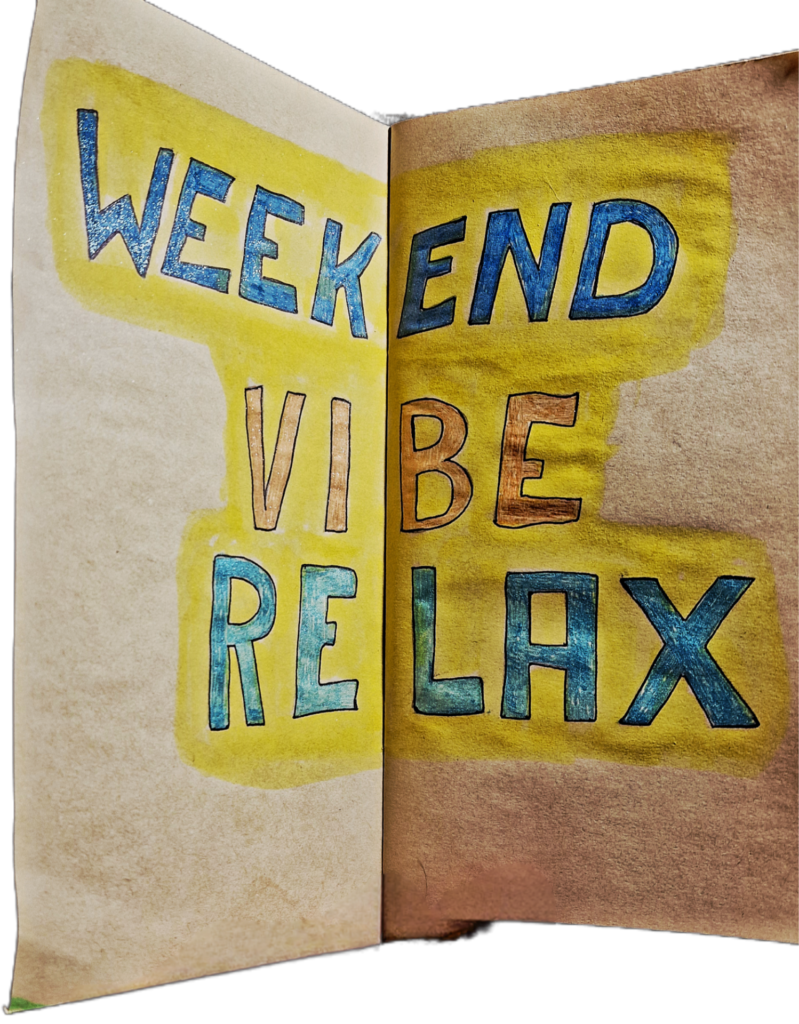 WEEKEND
VIBE
RELAX